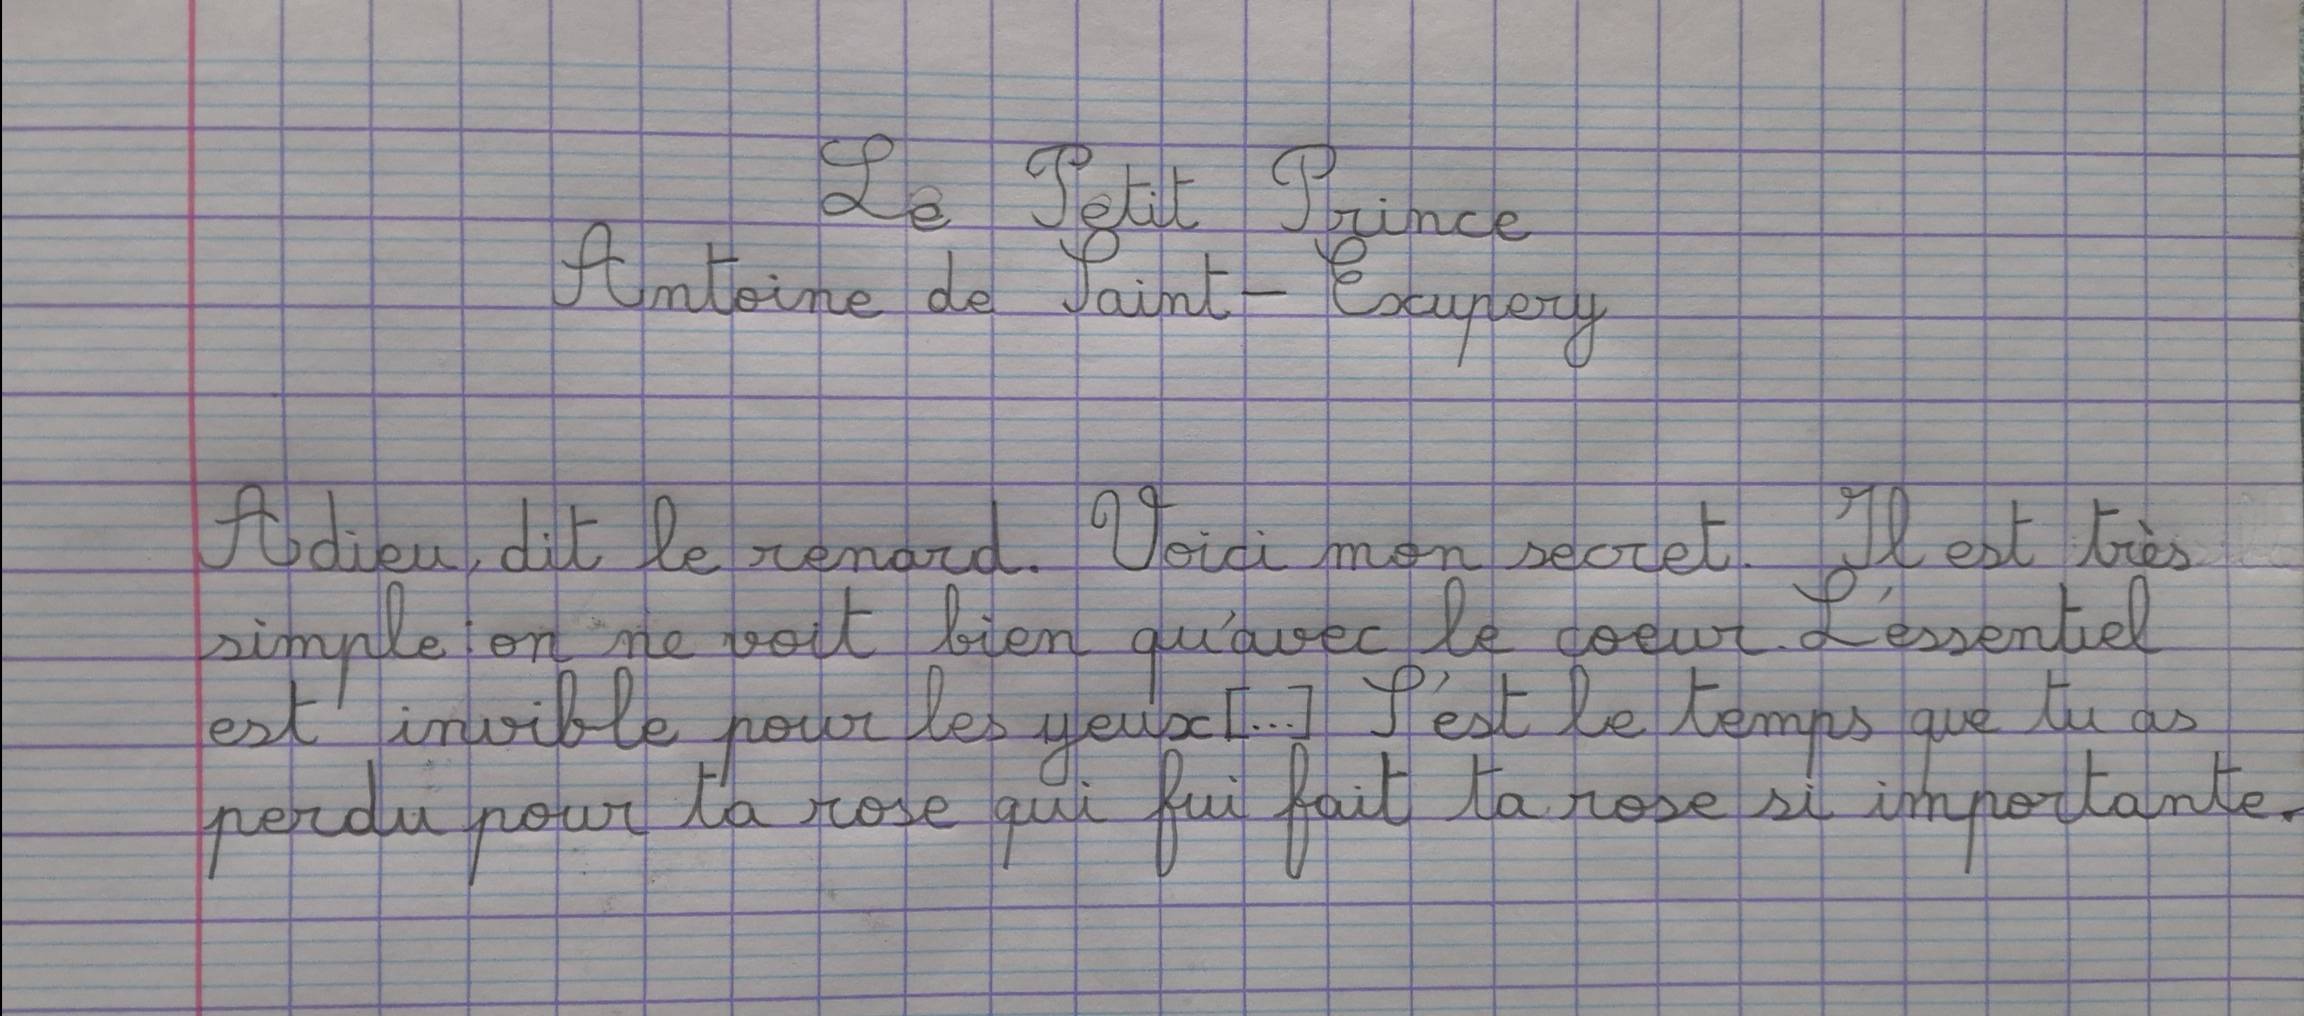 Le Petit Prince
Antoine de Saint-Exupery
Adieu, dit le renard. Voici mon secret. Il est très
simple : on ne voit bien qu'avec le coeur. L'essentiel
est invible pour les yeux [...] C'est le temps que tu as
perdu pour ta rose qui fui fait ta rose si importante.